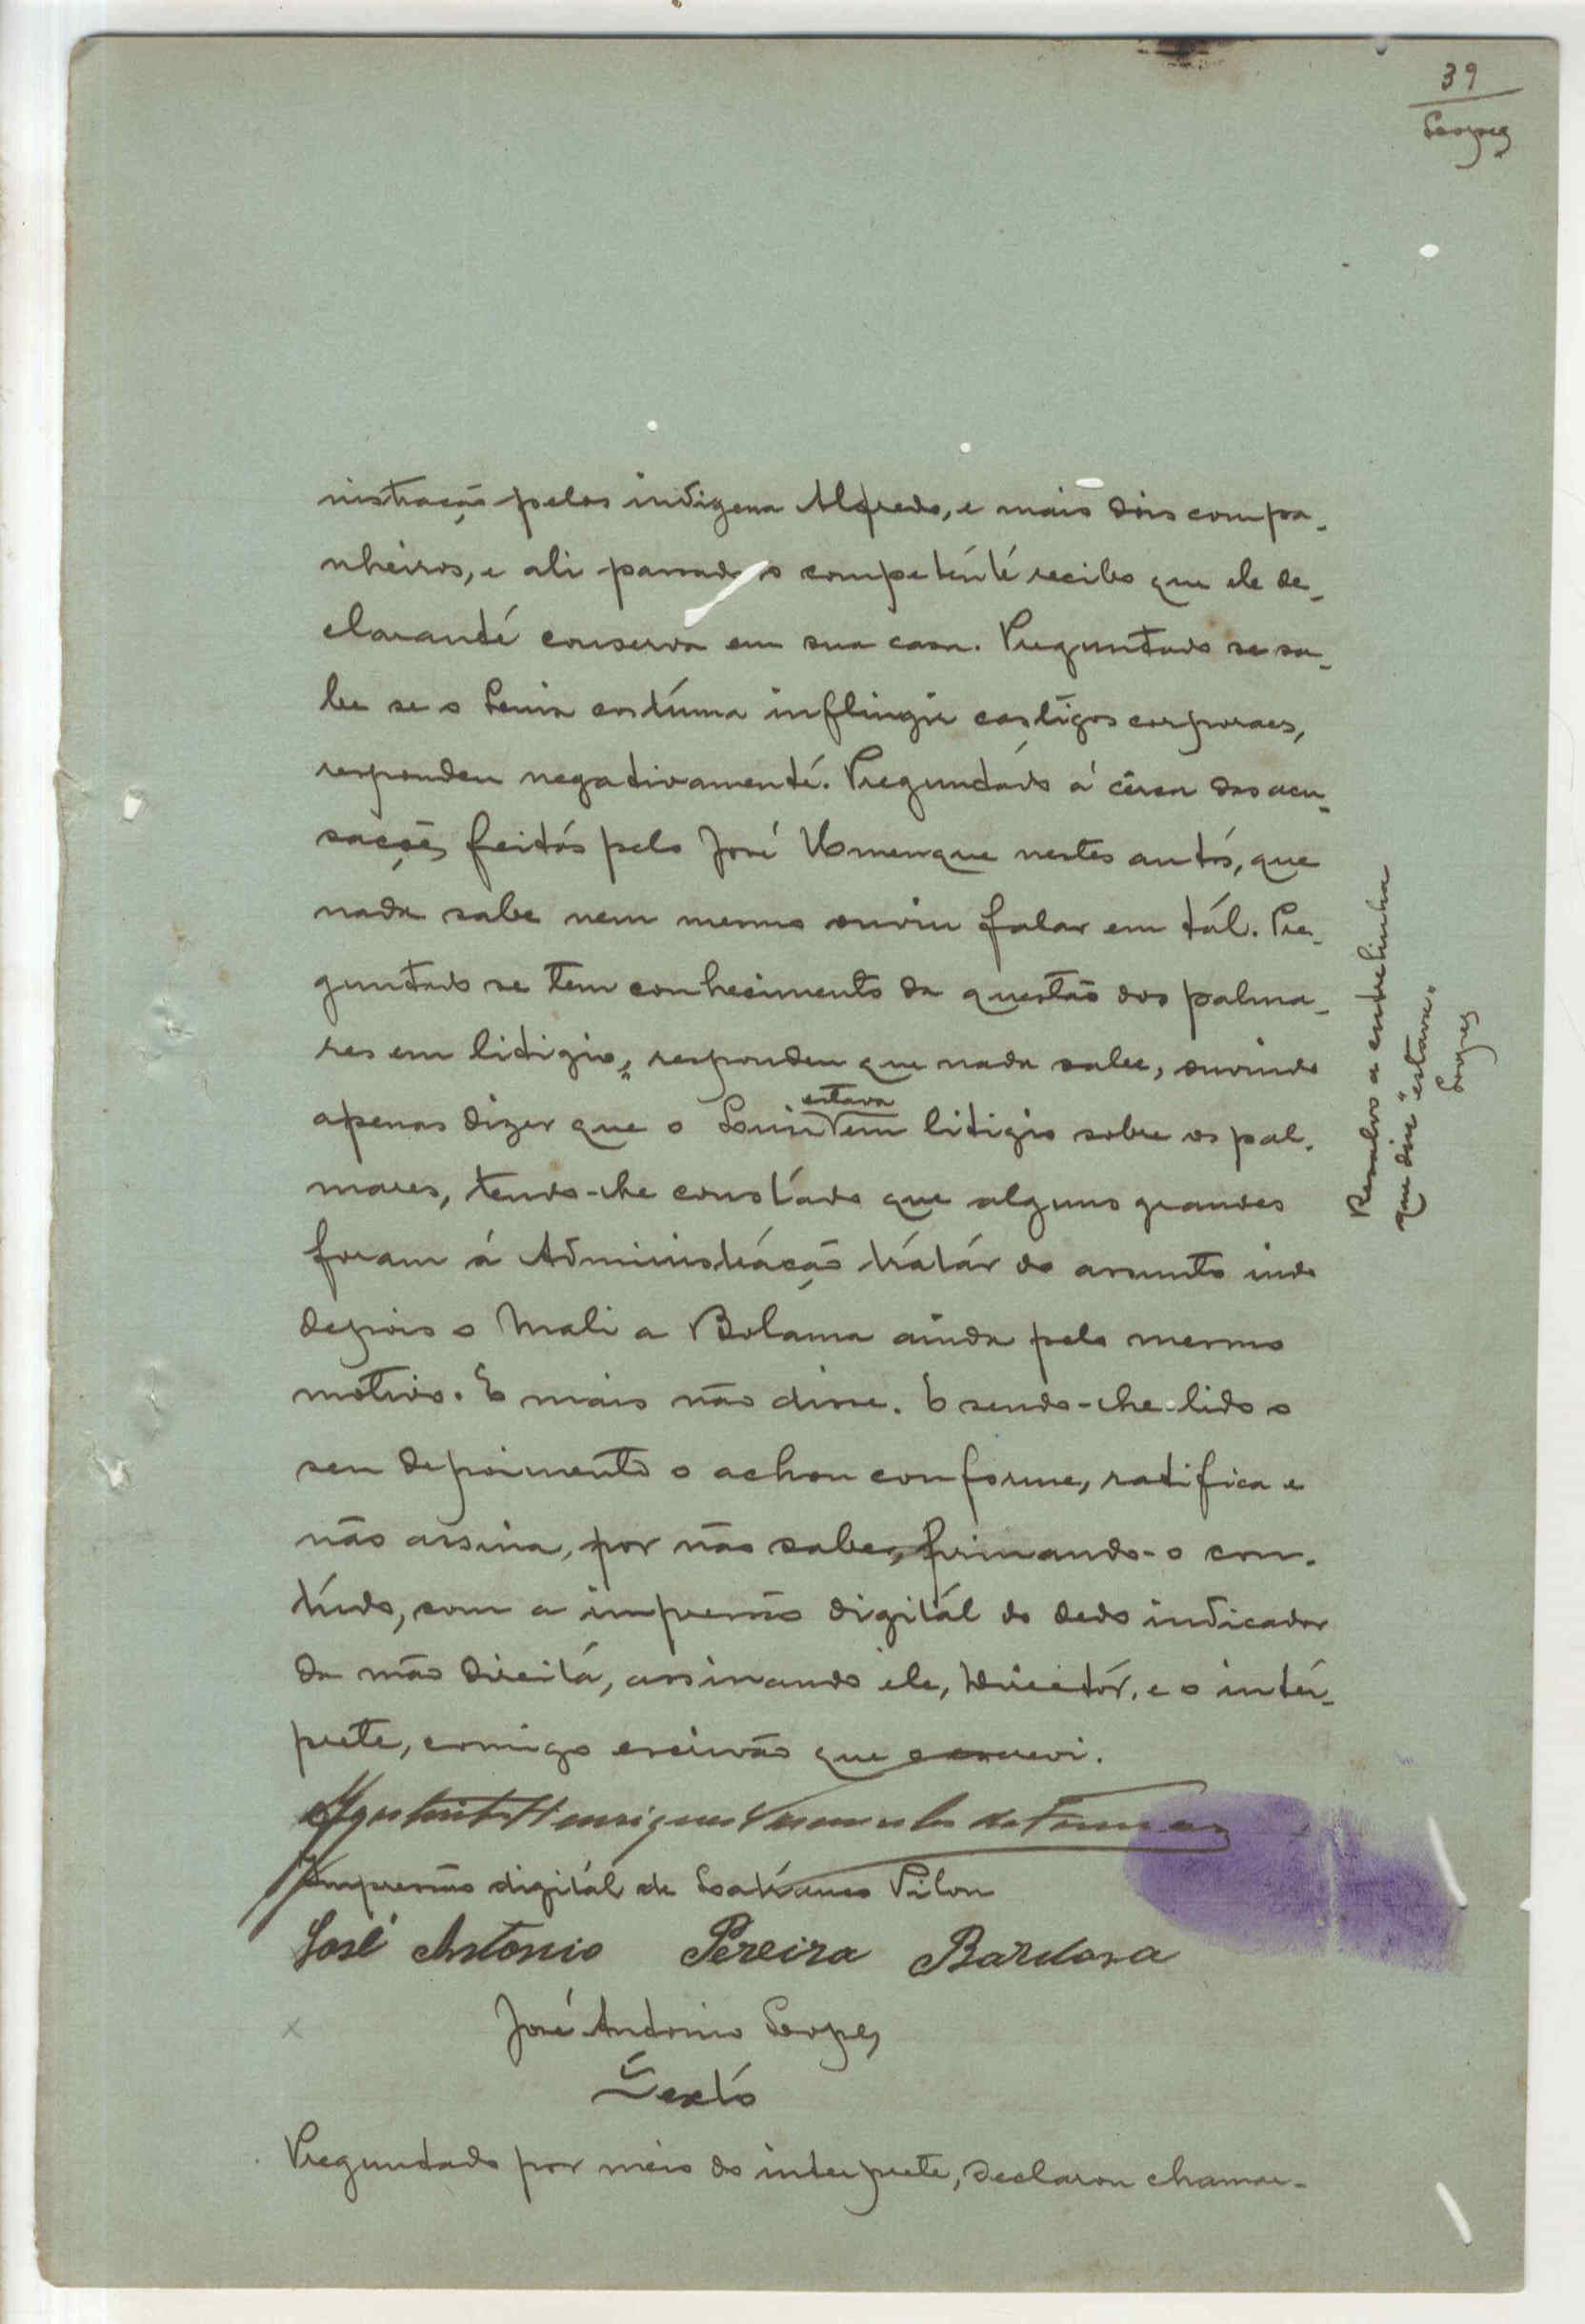 39
Lopes
nistração pelos indigena Alfredo, e mais dois compa-
nheiros, e ali passado o competênté recibo que ele de-
claranté conserva em sua casa. Preguntado se sa-
be se o costúma inflingir castigos corporaes,
respondeu negativamenté. Preguntádo á cêrca das acu-
sações feitás pelo José nestes autós, que
nada sabe nem mesmo ouviu falar em tál. Pre-
guntado se tem conhecimento da questão dos palma-
res em litigio, respondeu que nada sabe, ouvindo
apenas dizer que o estava em litigio sobre os pal-
mares, tendo-lhe constádo que alguns grandes
foram á Administráção trátár do assunto indo
depois o Mali a Bolama ainda pelo mesmo
motivo. E mais não disse. E sendo-lhe lido o
seu depoimento o achou conforme, ratifica e
não assina, por não saber, firmando-o con-
túdo, com a impressão digitál do dedo indicador
da mão direitá, assinando ele, Diréctór, e o intér-
prete, comigo escrivão que o escrevi.
Henriques da
Impressão digitál de Pilon
José Antonio Pereira Bardosa
José Antonio Lopes
Sextó
Preguntado por meio do interprete, declarou chamar-
Resalvo a entrelinha
que disse "estava"
Lopes